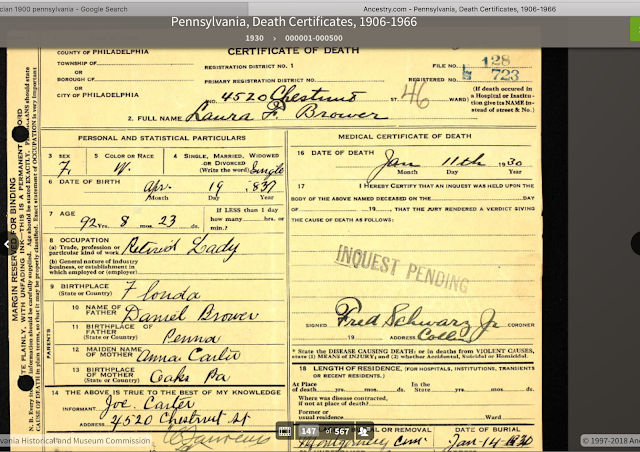 cian 1900 pennsylvania - Google Search
Ancestry.com - Pennsylvania, Death Certificates, 1906-1966
Pennsylvania, Death Certificates, 1906-1966
1930 › 000001-000500
COUNTY OF PHILADELPHIA
CERTIFICATE OF DEATH
TOWNSHIP OF
OR
BOROUGH OF
OR
CITY OF PHILADELPHIA
REGISTRATION DISTRICT NO. 1
PRIMARY REGISTRATION DISTRICT NO.
FILE NO. 128
REGISTERED NO. 723
NO. 4520 Chestnut ST. 46 WARD
(If death occurred in a Hospital or Institution give its NAME instead of street & No.)
2. FULL NAME Laura F. Brower
PERSONAL AND STATISTICAL PARTICULARS
3 SEX
F.
5 COLOR OR RACE
W.
4 SINGLE, MARRIED, WIDOWED
OR DIVORCED
(Write the word) Single
6 DATE OF BIRTH
Apr. 19 1837
Month Day Year
7 AGE
92 yrs. 8 mos. 23 ds.
If LESS than 1 day
how many hrs. or
min.?
8 OCCUPATION
(a) Trade, profession or
particular kind of work
Retired Lady
(b) General nature of industry
business, or establishment in
which employed (or employer)
9 BIRTHPLACE
(State or Country)
Florida
PARENTS
10 NAME OF
FATHER
Daniel Brower
11 BIRTHPLACE OF
FATHER
(State or Country)
Penna
12 MAIDEN NAME
OF MOTHER
Anna
13 BIRTHPLACE
OF MOTHER
(State or Country)
Oaks Pa
14 THE ABOVE IS TRUE TO THE BEST OF MY KNOWLEDGE
INFORMANT, Joe. Carter
ADDRESS 4520 Chestnut St
MEDICAL CERTIFICATE OF DEATH
16 DATE OF DEATH
Jan 11th 1930
Month Day Year
17 I HEREBY CERTIFY THAT AN INQUEST WAS HELD UPON THE
BODY OF THE ABOVE NAMED DECEASED ON THE DAY
OF 19 THAT THE JURY RENDERED A VERDICT GIVING
THE CAUSE OF DEATH AS FOLLOWS:
INQUEST PENDING
SIGNED Fred Schwarz Jr CORONER
19 ADDRESS
* State the DISEASE CAUSING DEATH: or in deaths from VIOLENT CAUSES,
state (1) MEANS OF INJURY; and (2) whether Accidental, Suicidal or Homicidal.
18 LENGTH OF RESIDENCE, (FOR HOSPITALS, INSTITUTIONS, TRANSIENTS
OR RECENT RESIDENTS.)
At Place
of death yrs. mos. ds.
In the
State yrs. mos. ds.
Where was disease contracted,
if not at place of death?
Former or
usual residence Ward
OR REMOVAL
DATE OF BURIAL
Montgomery Cem. Jan-14-1930
MARGIN RESERVED FOR BINDING
147 of 567
vania Historical and Museum Commission
© 1997-2018 Anc